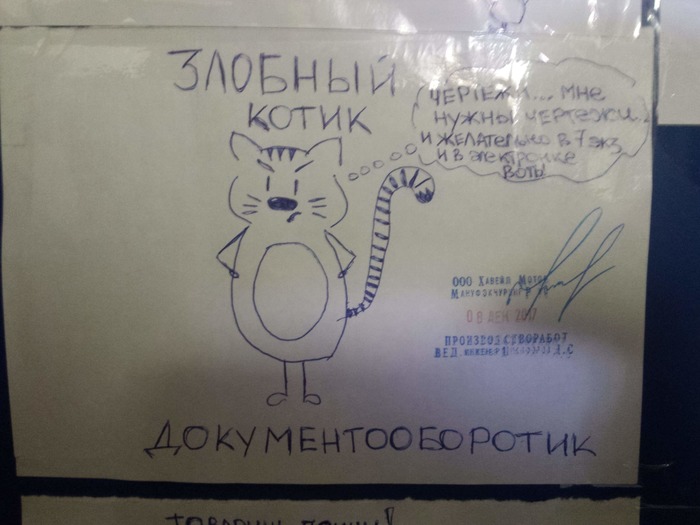 ЗЛОБНЫЙ
КОТИК
ЧЕРТЕЖИ... МНЕ
НУЖНЫ ЧЕРТЕЖИ..
И ЖЕЛАТЕЛЬНО В 7 ЭКЗ
И В ЭЛЕКТРОНКЕ
ВОТЬ!
ООО ХАВЕЙЛ МОТОР
МАНУФЭКЧУРИНГ
08 ДЕК 2017
ПРОИЗВОДСТВО РАБОТ
ВЕД. ИНЖЕНЕР
ДОКУМЕНТООБОРОТИК